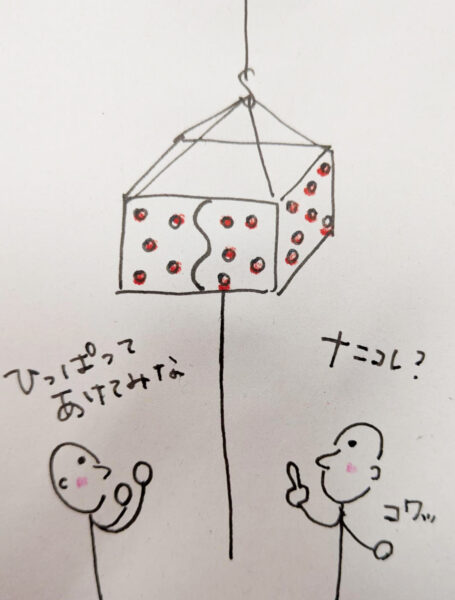 ひっぱって
あけてみな
ナニコレ?
コワッ